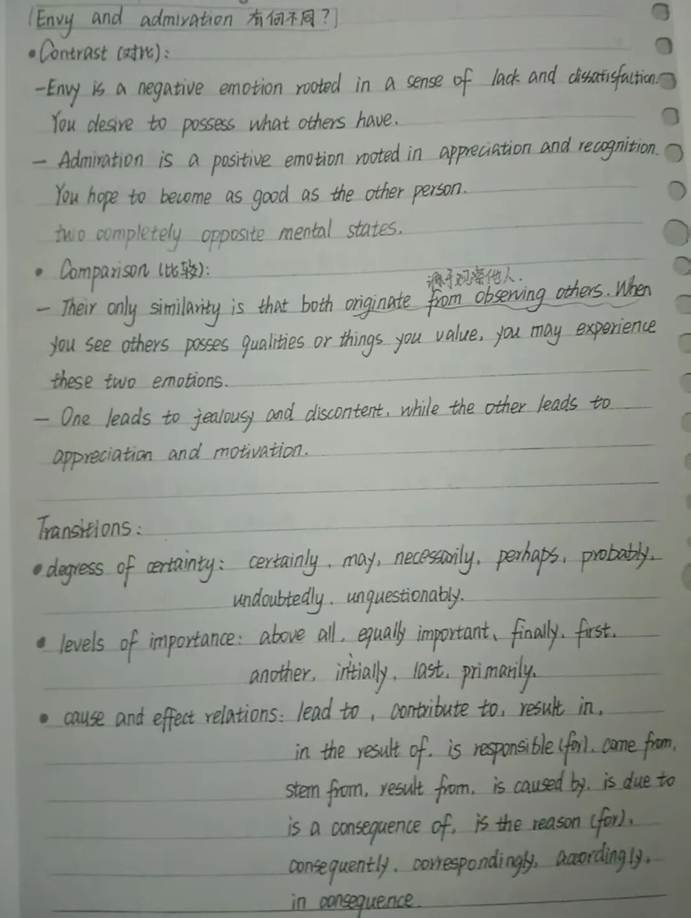 [Envy and admiration 有何不同?]
• Contrast (对比):
- Envy is a negative emotion rooted in a sense of lack and dissatisfaction.
You desire to possess what others have.
- Admiration is a positive emotion rooted in appreciation and recognition.
You hope to become as good as the other person.
two completely opposite mental states.
• Comparison (比较):
源于观察他人.
- Their only similarity is that both originate from observing others. When
you see others posses qualities or things you value, you may experience
these two emotions.
- One leads to jealousy and discontent, while the other leads to
appreciation and motivation.
Transitions:
• degress of certainty: certainly, may, necessarily, perhaps, probably,
undoubtedly, unquestionably.
• levels of importance: above all, equally important, finally, first,
another, initially, last, primarily.
• cause and effect relations: lead to, contribute to, result in,
in the result of, is responsible (for), come from,
stem from, result from, is caused by, is due to
is a consequence of, is the reason (for),
consequently, correspondingly, accordingly,
in consequence.